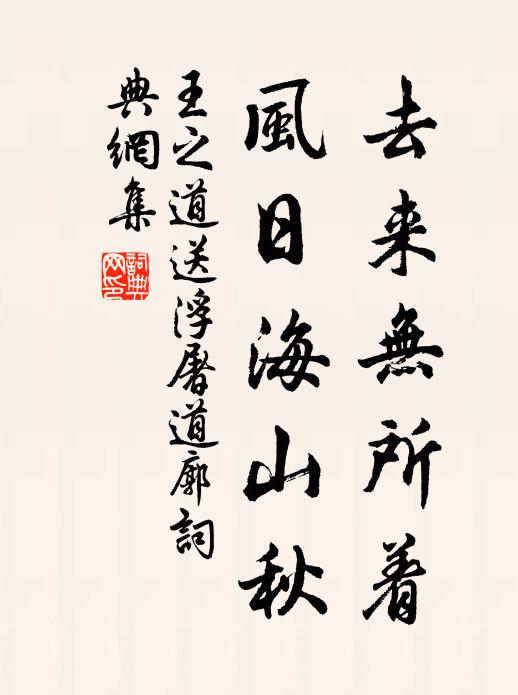 去来無所着
風日海山秋
王之道送浮屠道廓詞
典網集
詞典网印